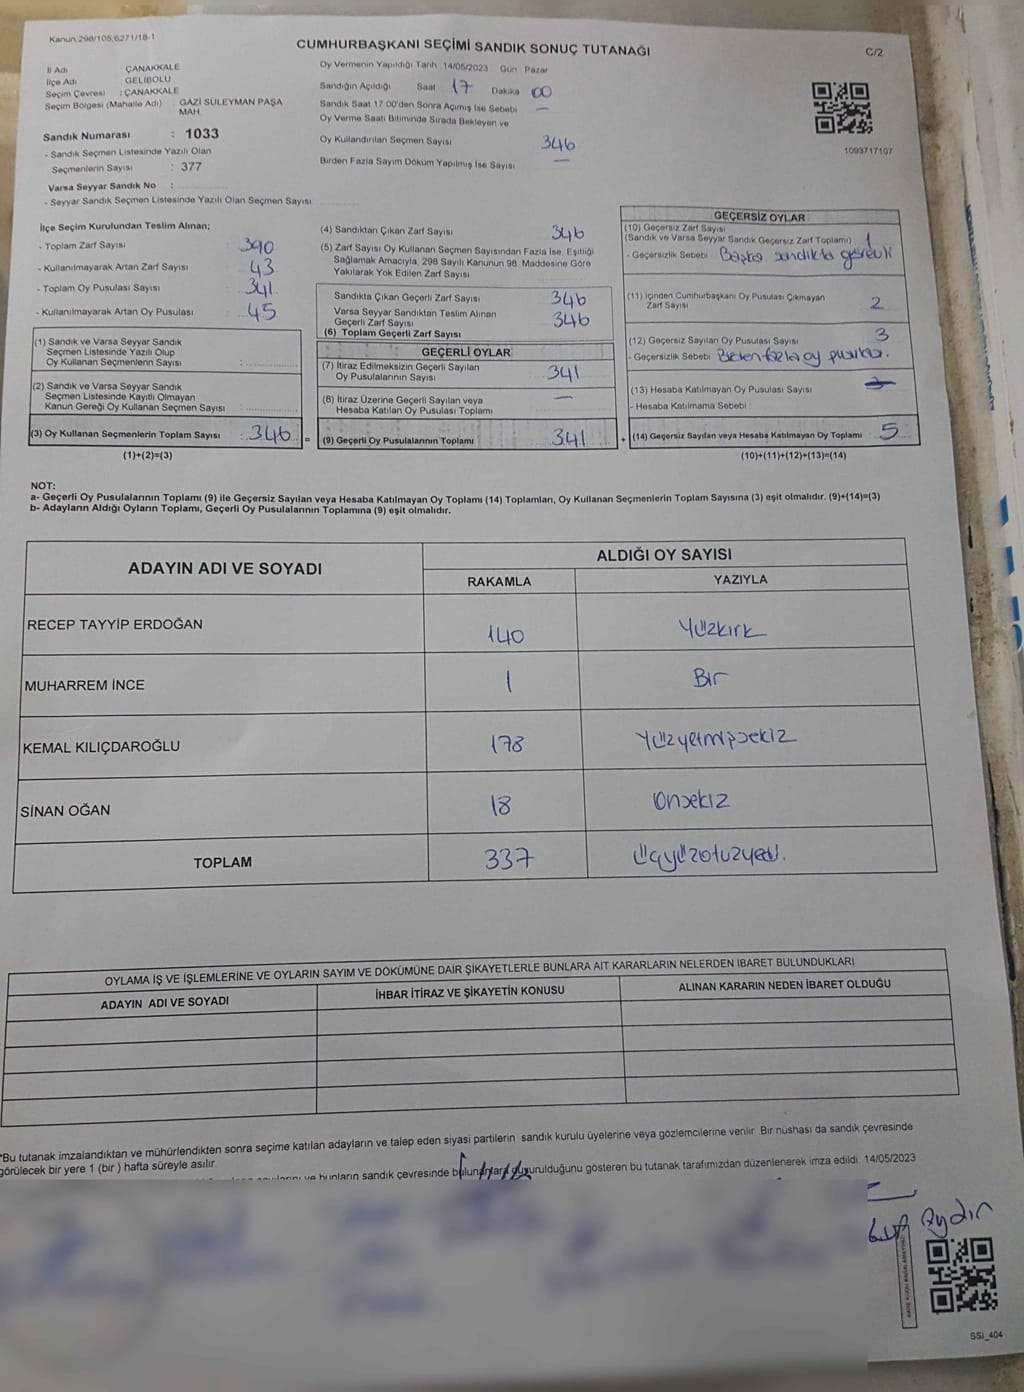 Kanun.298/105,6271/18-1
CUMHURBAŞKANI SEÇİMİ SANDIK SONUÇ TUTANAĞI
C/2
İl Adı : ÇANAKKALE
İlçe Adı : GELİBOLU
Seçim Çevresi : ÇANAKKALE
Seçim Bölgesi (Mahalle Adı) : GAZİ SÜLEYMAN PAŞA MAH.
Sandık Numarası : 1033
- Sandık Seçmen Listesinde Yazılı Olan
Seçmenlerin Sayısı : 377
Varsa Seyyar Sandık No :
- Seyyar Sandık Seçmen Listesinde Yazılı Olan Seçmen Sayısı
Oy Vermenin Yapıldığı Tarih 14/05/2023 Gün Pazar
Sandığın Açıldığı Saat 17 Dakika 00
Sandık Saat 17.00'den Sonra Açımış İse Sebebi —
Oy Verme Saati Bitiminde Sırada Bekleyen ve
Oy Kullandırılan Seçmen Sayısı 346
Birden Fazla Sayım Döküm Yapılmış İse Sayısı —
1093717107
İlçe Seçim Kurulundan Teslim Alınan;
- Toplam Zarf Sayısı 390
- Kullanılmayarak Artan Zarf Sayısı 43
- Toplam Oy Pusulası Sayısı 341
- Kullanılmayarak Artan Oy Pusulası 45
(1) Sandık ve Varsa Seyyar Sandık
Seçmen Listesinde Yazılı Olup
Oy Kullanan Seçmenlerin Sayısı :
(2) Sandık ve Varsa Seyyar Sandık
Seçmen Listesinde Kayıtlı Olmayan
Kanun Gereği Oy Kullanan Seçmen Sayısı :
(3) Oy Kullanan Seçmenlerin Toplam Sayısı : 346 =
(1)+(2)=(3)
(4) Sandıktan Çıkan Zarf Sayısı 346
(5) Zarf Sayısı Oy Kullanan Seçmen Sayısından Fazla İse, Eşitliği
Sağlamak Amacıyla, 298 Sayılı Kanunun 98. Maddesine Göre
Yakılarak Yok Edilen Zarf Sayısı
Sandıkta Çıkan Geçerli Zarf Sayısı 346
Varsa Seyyar Sandıktan Teslim Alınan
Geçerli Zarf Sayısı 346
(6) Toplam Geçerli Zarf Sayısı
GEÇERLİ OYLAR
(7) İtiraz Edilmeksizin Geçerli Sayılan
Oy Pusulalarının Sayısı 341
(8) İtiraz Üzerine Geçerli Sayılan veya
Hesaba Katılan Oy Pusulası Toplamı —
(9) Geçerli Oy Pusulalarının Toplamı 341 +
GEÇERSİZ OYLAR
(10) Geçersiz Zarf Sayısı
(Sandık ve Varsa Seyyar Sandık Geçersiz Zarf Toplamı) 1
- Geçersizlik Sebebi Başka sandıkta görevli
(11) İçinden Cumhurbaşkanı Oy Pusulası Çıkmayan
Zarf Sayısı 2
(12) Geçersiz Sayılan Oy Pusulası Sayısı 3
- Geçersizlik Sebebi Birden fazla oy pusulası.
(13) Hesaba Katılmayan Oy Pusulası Sayısı
- Hesaba Katılmama Sebebi :
(14) Geçersiz Sayılan veya Hesaba Katılmayan Oy Toplamı : 5
(10)+(11)+(12)+(13)=(14)
NOT:
a- Geçerli Oy Pusulalarının Toplamı (9) ile Geçersiz Sayılan veya Hesaba Katılmayan Oy Toplamı (14) Toplamları, Oy Kullanan Seçmenlerin Toplam Sayısına (3) eşit olmalıdır. (9)+(14)=(3)
b- Adayların Aldığı Oyların Toplamı, Geçerli Oy Pusulalarının Toplamına (9) eşit olmalıdır.
ADAYIN ADI VE SOYADI
ALDIĞI OY SAYISI
RAKAMLA YAZIYLA
RECEP TAYYİP ERDOĞAN 140 Yüzkırk
MUHARREM İNCE 1 Bir
KEMAL KILIÇDAROĞLU 178 Yüzyetmişsekiz
SİNAN OĞAN 18 Onsekiz
TOPLAM 337 Üçyüzotuzyedi.
OYLAMA İŞ VE İŞLEMLERİNE VE OYLARIN SAYIM VE DÖKÜMÜNE DAİR ŞİKAYETLERLE BUNLARA AİT KARARLARIN NELERDEN İBARET BULUNDUKLARI
ADAYIN ADI VE SOYADI İHBAR İTİRAZ VE ŞİKAYETİN KONUSU ALINAN KARARIN NEDEN İBARET OLDUĞU
*Bu tutanak imzalandıktan ve mühürlendikten sonra seçime katılan adayların ve talep eden siyasi partilerin sandık kurulu üyelerine veya gözlemcilerine verilir. Bir nüshası da sandık çevresinde
görülecek bir yere 1 (bir) hafta süreyle asılır.
ve bunların sandık çevresinde duyurulduğunu gösteren bu tutanak tarafımızdan düzenlenerek imza edildi. 14/05/2023
Aydın
SSI_404